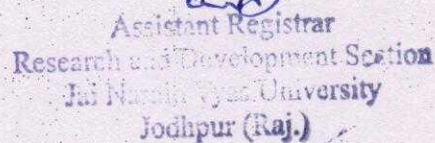 Assistant Registrar
Research and Development Section
Jai Narain Vyas University
Jodhpur (Raj.)